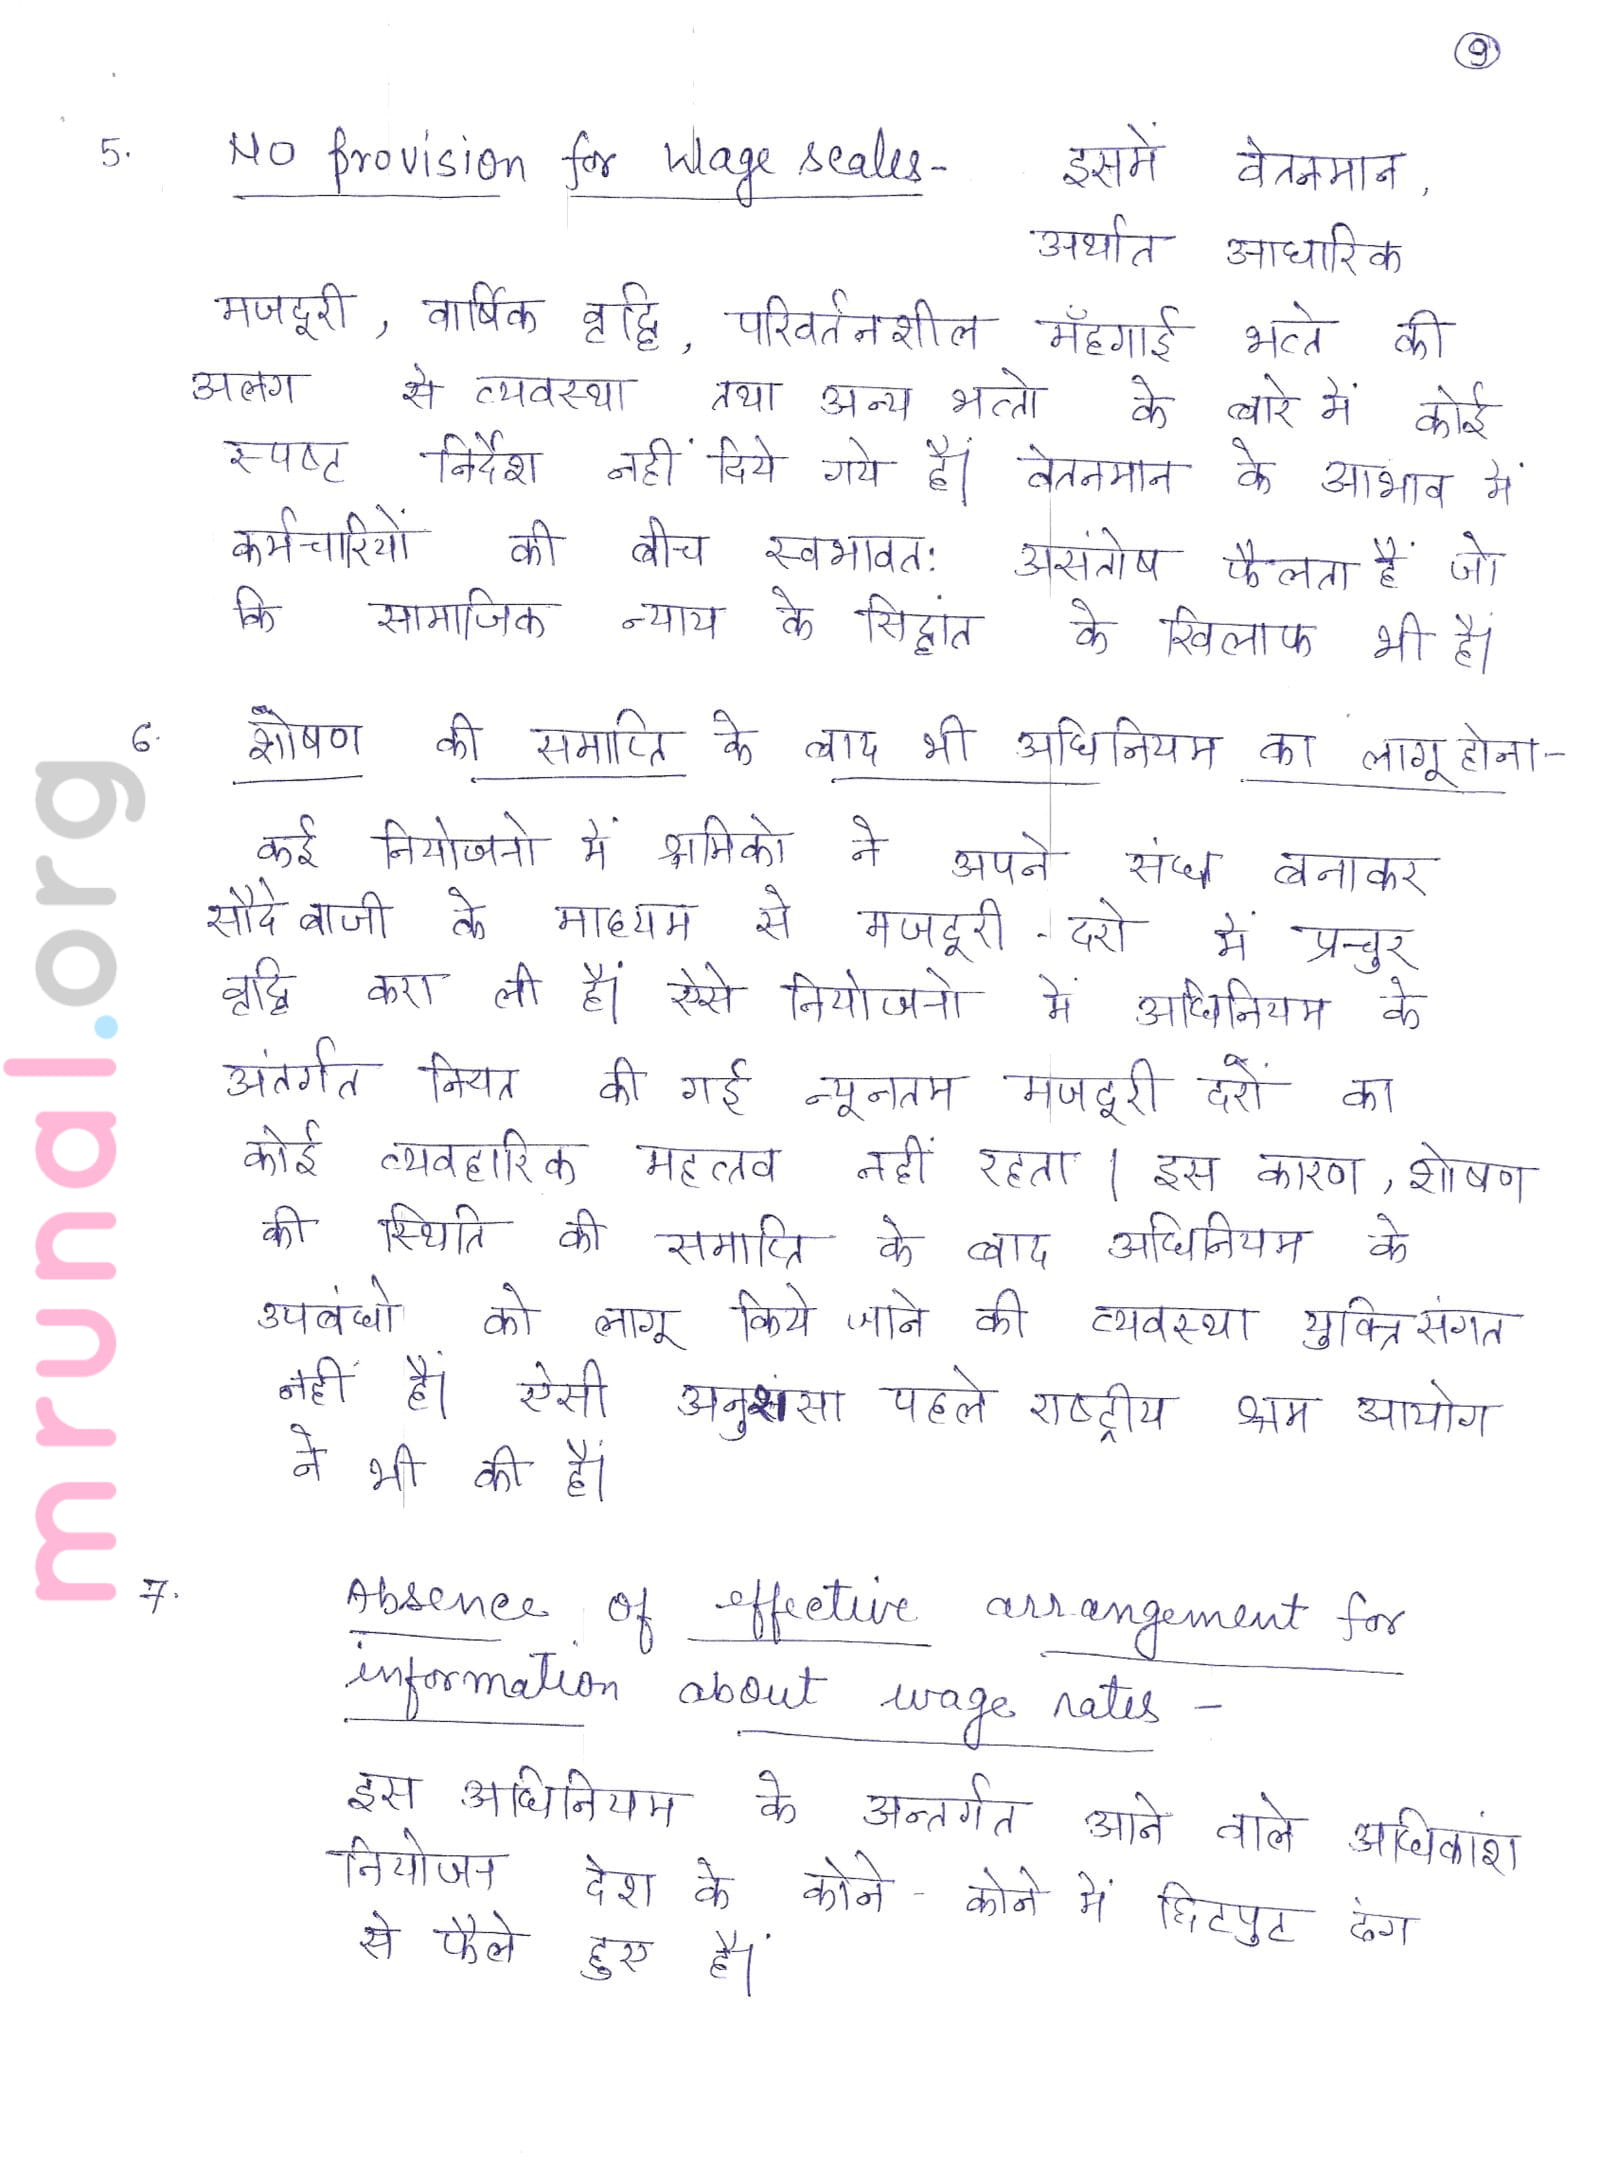 9
5. No provision for Wage scales- इसमें वेतनमान,
अर्थात आधारिक
मजदूरी, वार्षिक वृद्धि, परिवर्तनशील मँहगाई भत्ते की
अलग से व्यवस्था तथा अन्य भत्तो के बारे में कोई
स्पष्ट निर्देश नहीं दिये गये हैं। वेतनमान के आभाव में
कर्मचारियों की बीच स्वभावत: असंतोष फैलता हैं जो
कि सामाजिक न्याय के सिद्धांत के खिलाफ भी हैं।
6. शोषण की समाप्ति के बाद भी अधिनियम का लागू होना-
कई नियोजनो में श्रमिको ने अपने संघ बनाकर
सौदेबाजी के माध्यम से मजदूरी-दरो में प्रचुर
वृद्धि करा ली हैं। ऐसे नियोजनो में अधिनियम के
अंतर्गत नियत की गई न्यूनतम मजदूरी दरों का
कोई व्यवहारिक महत्तव नहीं रहता। इस कारण, शोषण
की स्थिति की समाप्ति के बाद अधिनियम के
उपबंधो को लागू किये जाने की व्यवस्था युक्तिसंगत
नहीं हैं। ऐसी अनुशंसा पहले राष्ट्रीय श्रम आयोग
ने भी की हैं।
7. Absence of effective arrangement for
information about wage rates -
इस अधिनियम के अन्तर्गत आने वाले अधिकांश
नियोजन देश के कोने-कोने में छिटपुट ढंग
से फैले हुए हैं।
mrunal.org